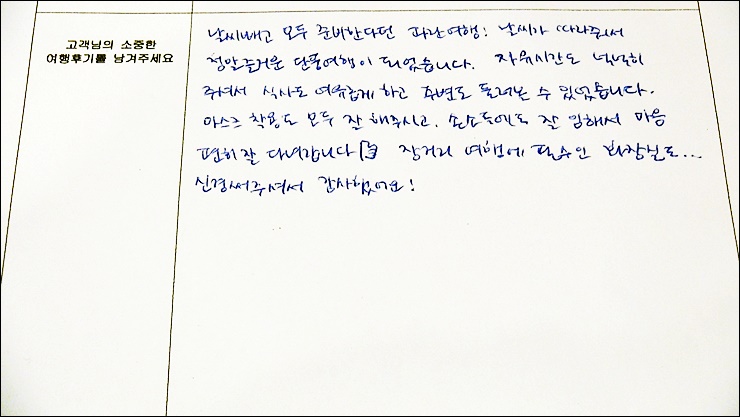 고객님의 소중한
여행후기를 남겨주세요
날씨빼고 모두 준비한다던 파란여행! 날씨가 따라줘서
정말즐거운 단풍여행이 되었습니다. 자유시간도 넉넉히
주셔서 식사도 여유롭게 하고 주변도 둘러보는 수 있었습니다.
마스크 착용도 모두 잘 해주시고, 손소독에도 잘 임해서 마음
편히 잘 다녀갑니다 장거리 여행에 필수인 화장실도...
신경써주셔서 감사했어요!